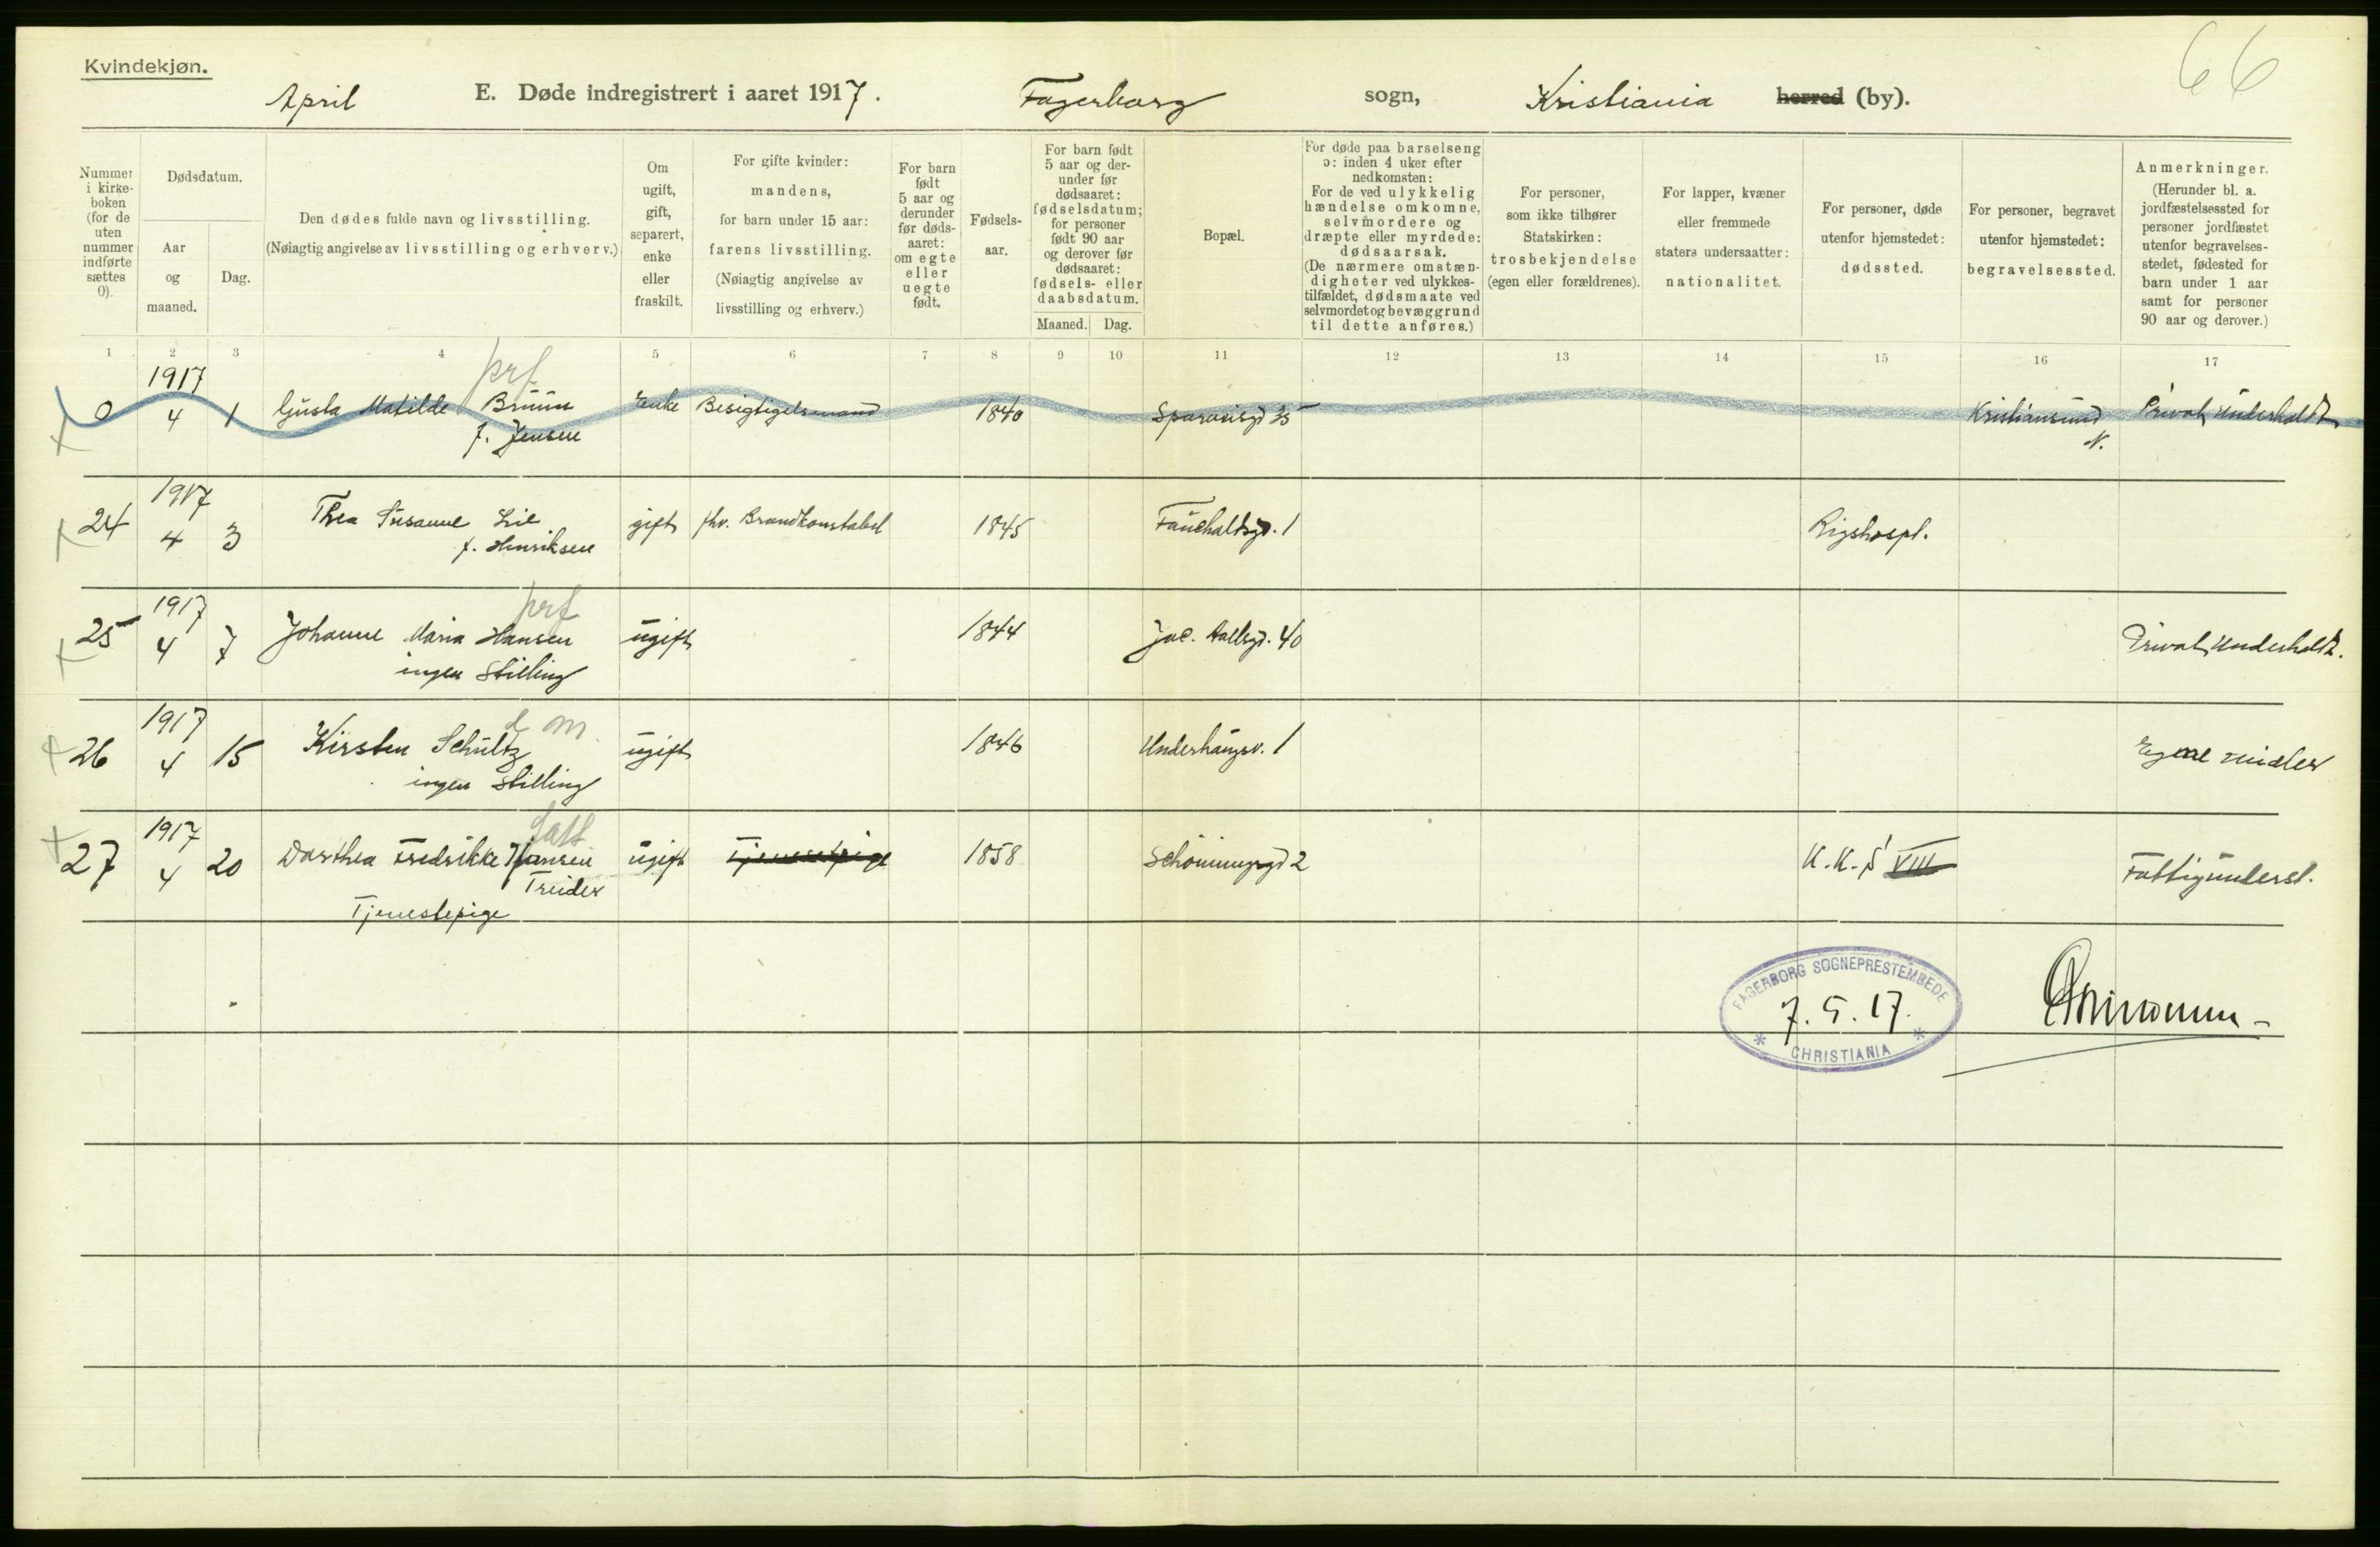 Kvindekjøn.
66
April E. Døde indregistrert i aaret 1917. Fagerborg sogn, Kristiania herred (by).
Nummer i kirkeboken (for de uten nummer indførte sættes 0).
Dødsdatum.
Aar og maaned.
Dag.
Den dødes fulde navn og livsstilling.
(Nøiagtig angivelse av livsstilling og erhverv.)
Om ugift, gift, separert, enke eller fraskilt.
For gifte kvinder: mandens, for barn under 15 aar: farens livsstilling. (Nøiagtig angivelse av livsstilling og erhverv.)
For barn født 5 aar og derunder før dødsaaret: om egte eller uegte født.
Fødselsaar.
For barn født 5 aar og derunder før dødsaaret: fødselsdatum; for personer født 90 aar og derover før dødsaaret: fødsels- eller daabsdatum.
Maaned. Dag.
Bopæl.
For døde paa barselseng ɔ: inden 4 uker efter nedkomsten: For de ved ulykkelig hændelse omkomne, selvmordere og dræpte eller myrdede: dødsaarsak. (De nærmere omstændigheter ved ulykkestilfældet, dødsmaate ved selvmordet og bevæggrund til dette anføres.)
For personer, som ikke tilhører Statskirken: trosbekjendelse (egen eller forældrenes).
For lapper, kvæner eller fremmede staters undersaatter: nationalitet.
For personer, døde utenfor hjemstedet: dødssted.
For personer, begravet utenfor hjemstedet: begravelsessted.
Anmerkninger. (Herunder bl. a. jordfæstelsessted for personer jordfæstet utenfor begravelsesstedet, fødested for barn under 1 aar samt for personer 90 aar og derover.)
1 2 3 4 5 6 7 8 9 10 11 12 13 14 15 16 17
1917 prf
0 4 1 Gusta Matilde Bruun Enke Besigtigelsmand 1840 35 Kristiansund Privat Underholdt
f. Jensen N.
1917
24 4 3 Thea Susanne Lie gift fhv. Brandkonstabel 1845 Fauchaldsgd. 1 Rigshospl.
f. Henriksen
1917 prf
25 4 7 Johanne Maria Hansen ugift 1844 Jac. Aallsgd. 40 Privat Underholdt.
ingen Stilling
1917 d m
26 4 15 Kirsten Schultz ugift 1846 Underhaugsv. 1 Egne midler
ingen Stilling
1917 fatt
27 4 20 Dorthea Fredrikke Hansen ugift Tjenestepige 1858 Schøningsgd 2 K. K. S VIII Fattigunderst.
Treider
Tjenestepige
FAGERBORG SOGNEPRESTEMBEDE
7.5.17.
* CHRISTIANIA *